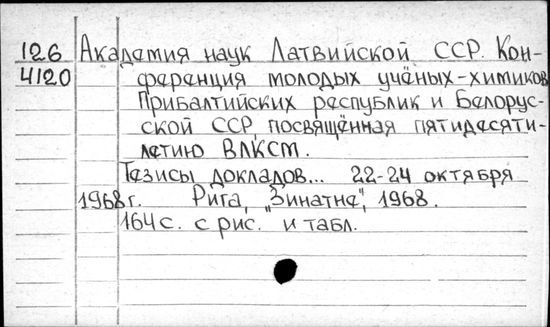 126 Академия наук Латвийской ССР. Кон-
4120 ференция молодых учёных-химиков
Прибалтийских республик и Белорус-
ской ССР, посвящённая пятидесяти-
летию ВЛКСМ.
Тезисы докладов... 22-24 октября
1968 г. Рига, „Зинатне", 1968.
164 с. с рис. и табл.